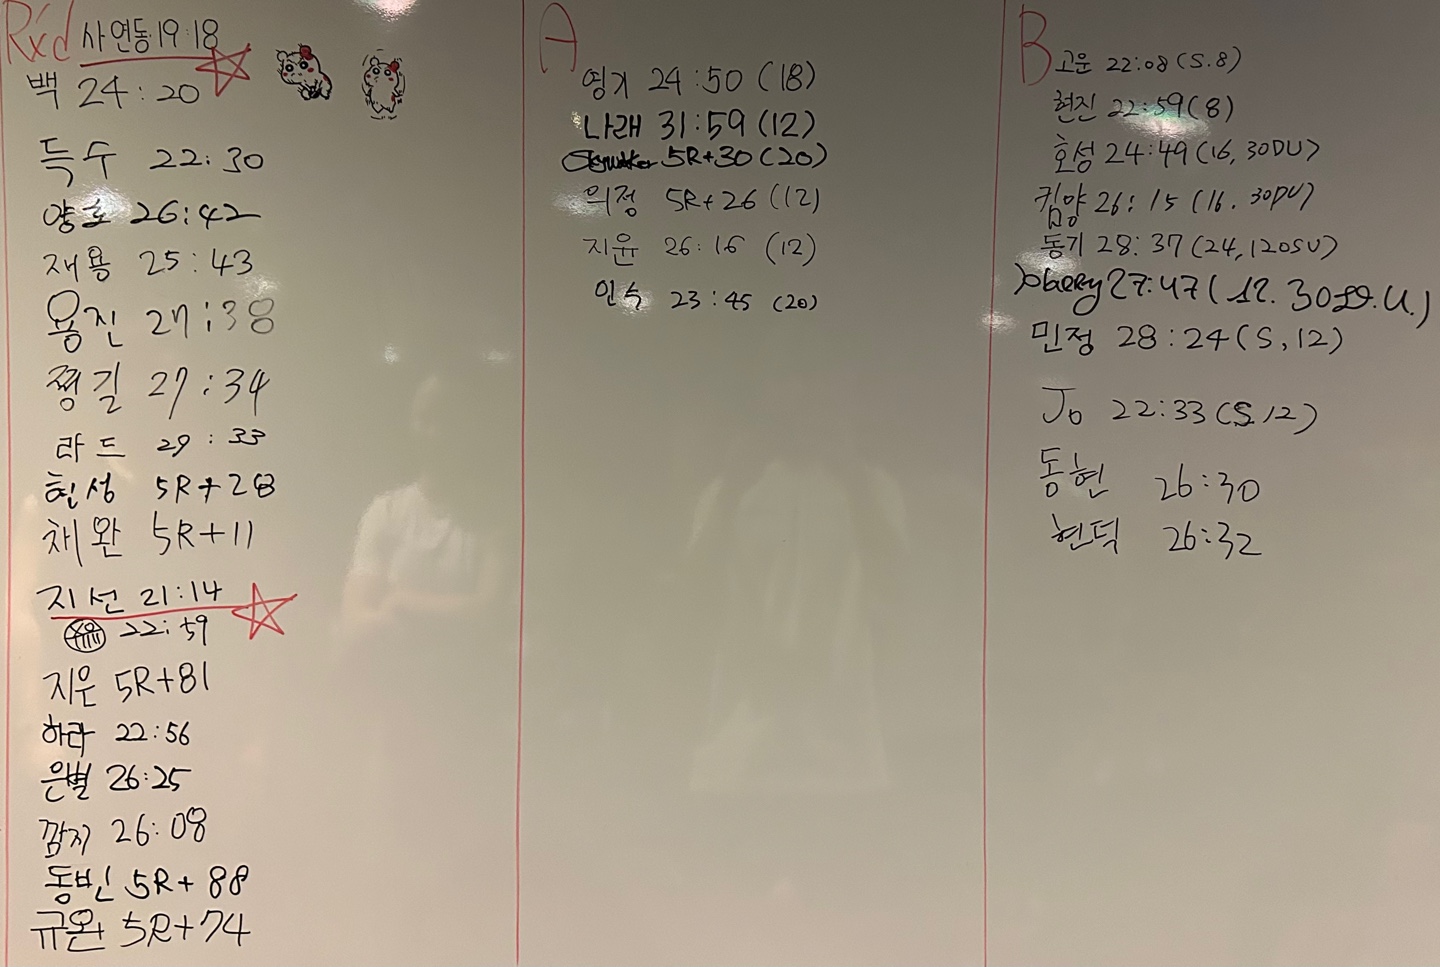 Rx'd
사연동 19:18
백 24:20
득수 22:30
양호 26:42
재용 25:43
용진 27:38
쩡길 27:34
라드 29:33
현성 5R+28
채완 5R+11
지선 21:14
22:59
지운 5R+81
하라 22:56
은별 26:25
깜지 26:08
동빈 5R+88
규완 5R+74
A
영기 24:50 (18)
나래 31:59 (12)
5R+30 (20)
의정 5R+26 (12)
지윤 26:16 (12)
인수 23:45 (20)
B
고운 22:08 (S.8)
현진 22:59 (8)
호성 24:49 (16, 30DU)
킴양 26:15 (16. 30DU)
동기 28:37 (24, 120SU)
27:47 (12. 30
민정 28:24 (S, 12)
Jo 22:33 (S. 12)
동현 26:30
현덕 26:32